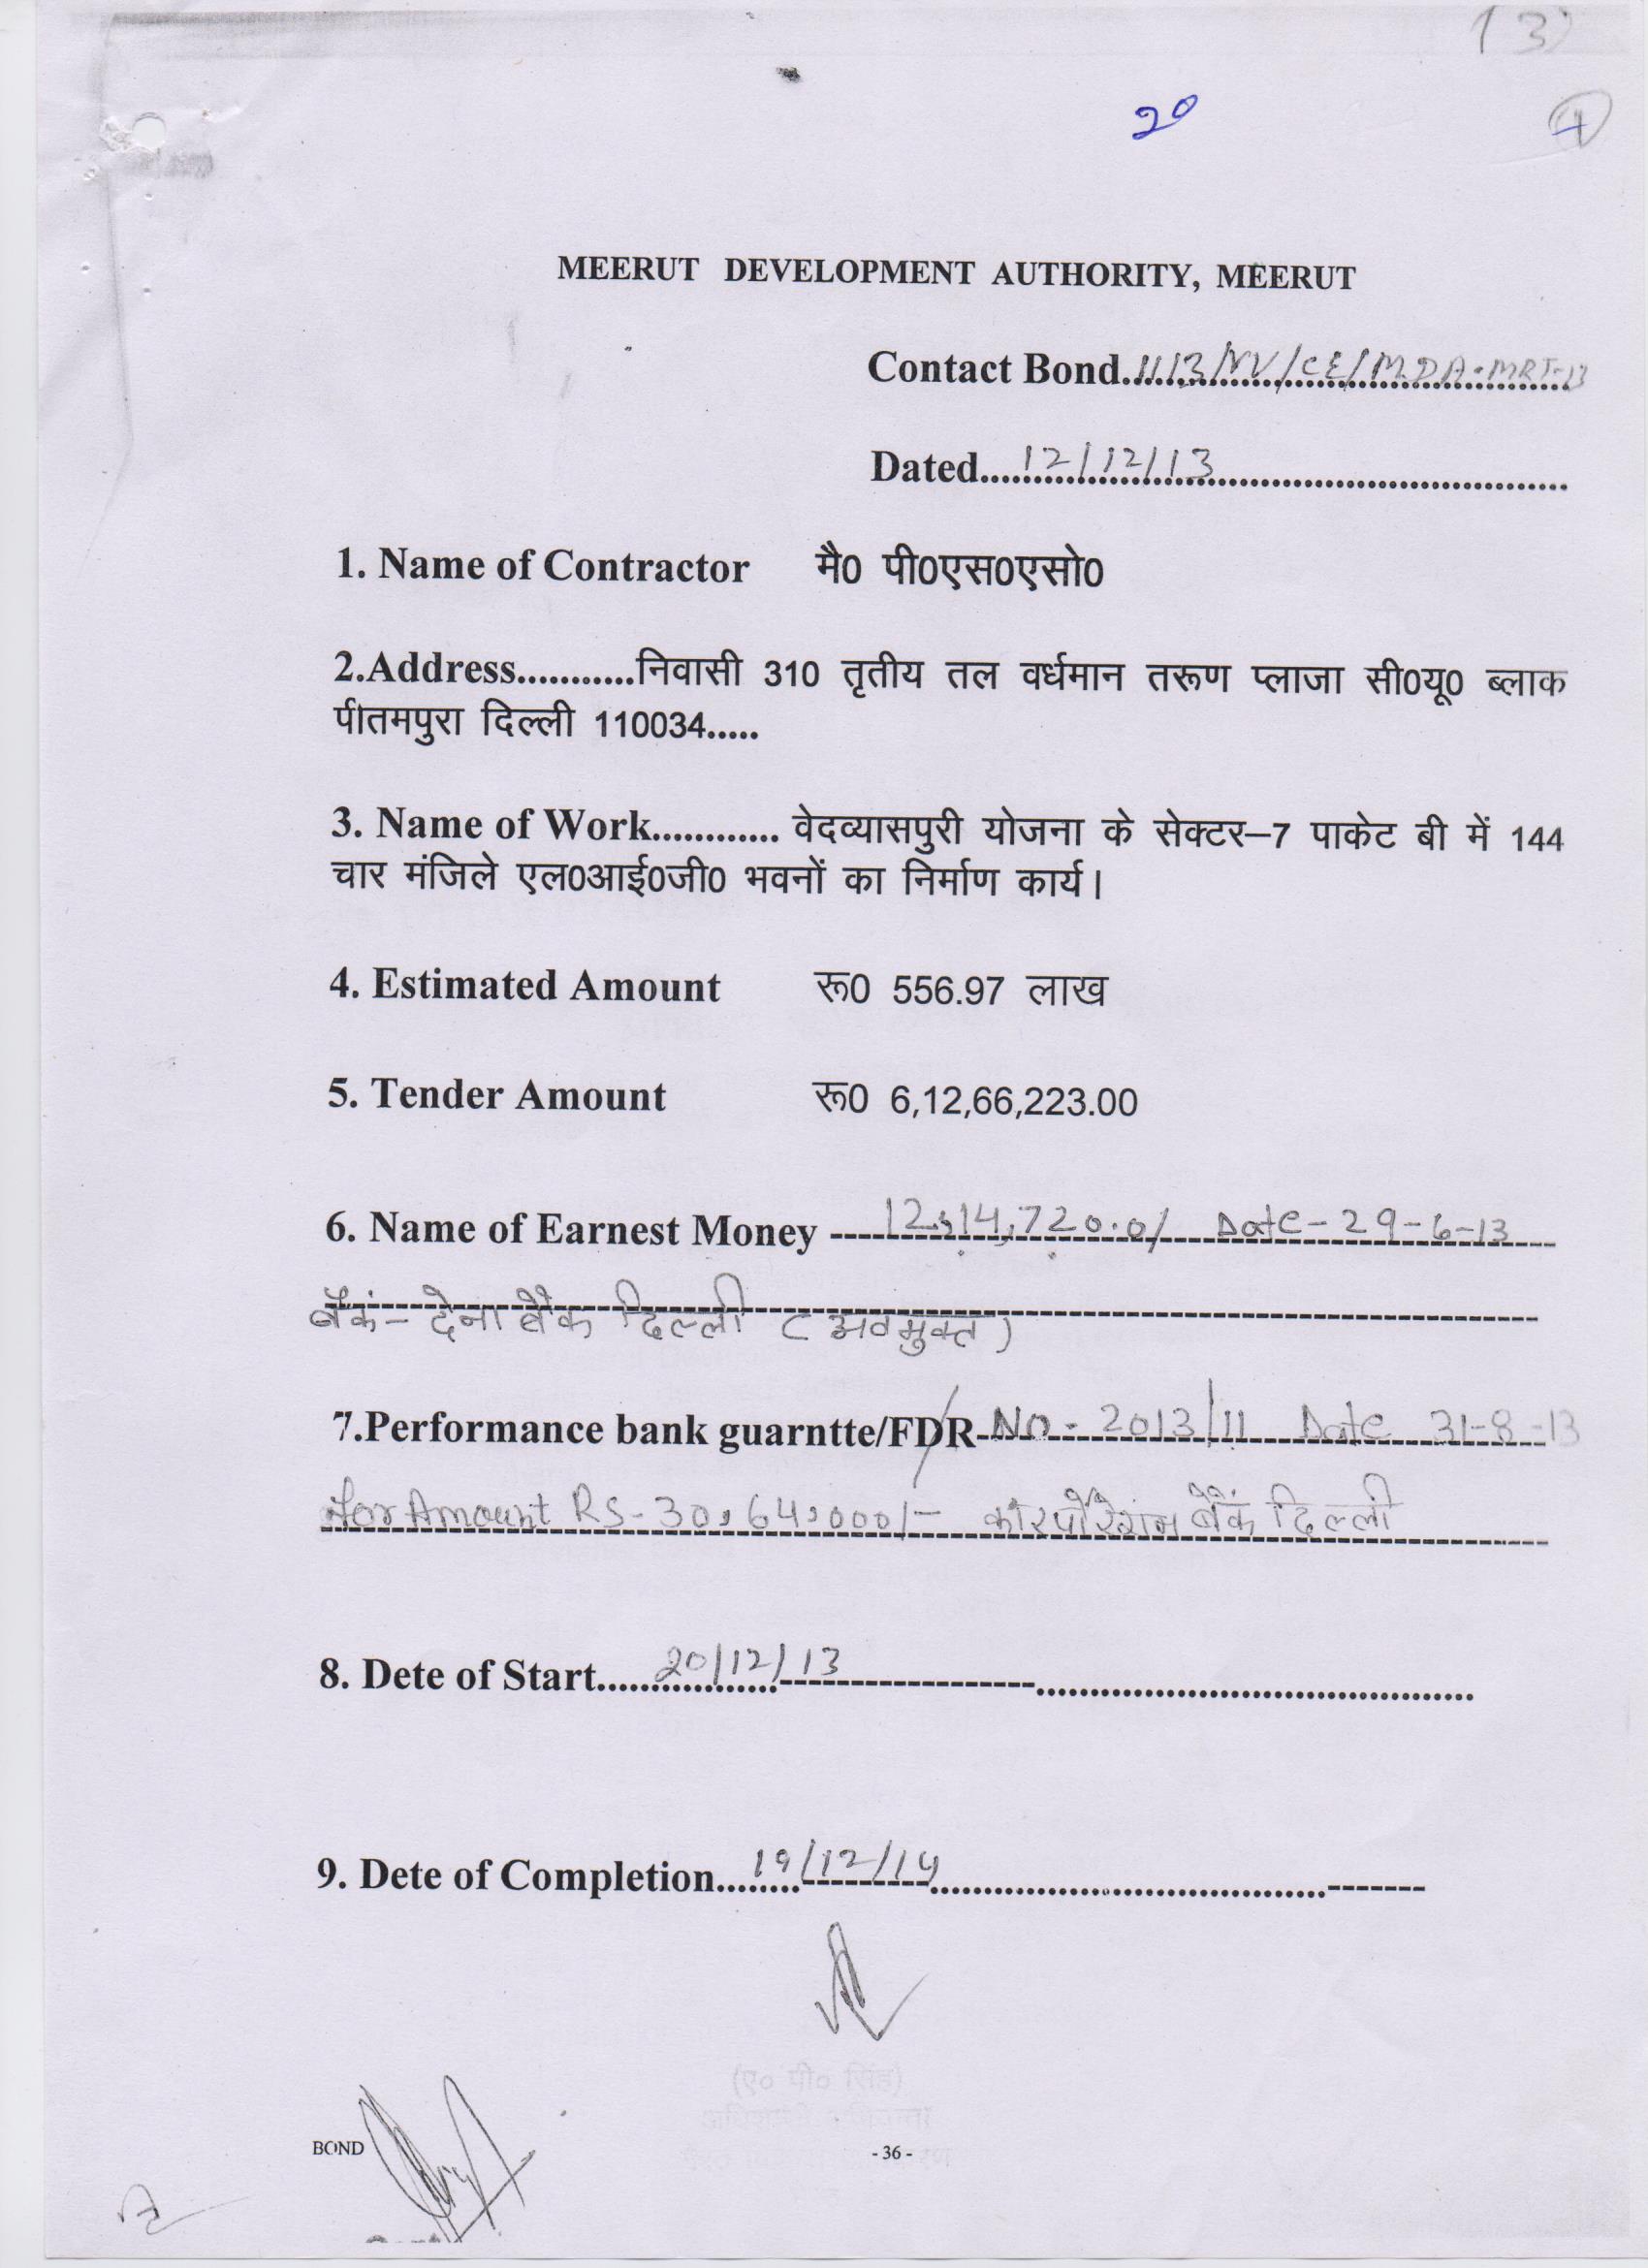 13
20
4
MEERUT DEVELOPMENT AUTHORITY, MEERUT
Contact Bond. 11/3/NV/CE/M.D.A.MRT-13
Dated....12/12/13........
1. Name of Contractor मै0 पी0एस0एसो0
2.Address...........निवासी 310 तृतीय तल वर्धमान तरूण प्लाजा सी0यू0 ब्लाक
पीतमपुरा दिल्ली 110034.....
3. Name of Work............ वेदव्यासपुरी योजना के सेक्टर–7 पाकेट बी में 144
चार मंजिले एल0आई0जी0 भवनों का निर्माण कार्य।
4. Estimated Amount रू0 556.97 लाख
5. Tender Amount रू0 6,12,66,223.00
6. Name of Earnest Money ---- 12,14,720.0/ Date-29-6-13
बैंक- देना बैंक दिल्ली (अवमुक्त)
7.Performance bank guarntte/FDR- No- 2013/11 Date 31-8-13
for Amount RS-30,64,000/- कॉरपोरेशन बैंक दिल्ली
8. Dete of Start......20/12/13
9. Dete of Completion...19/12/14
(ए० पी० सिंह)
BOND - 36 -